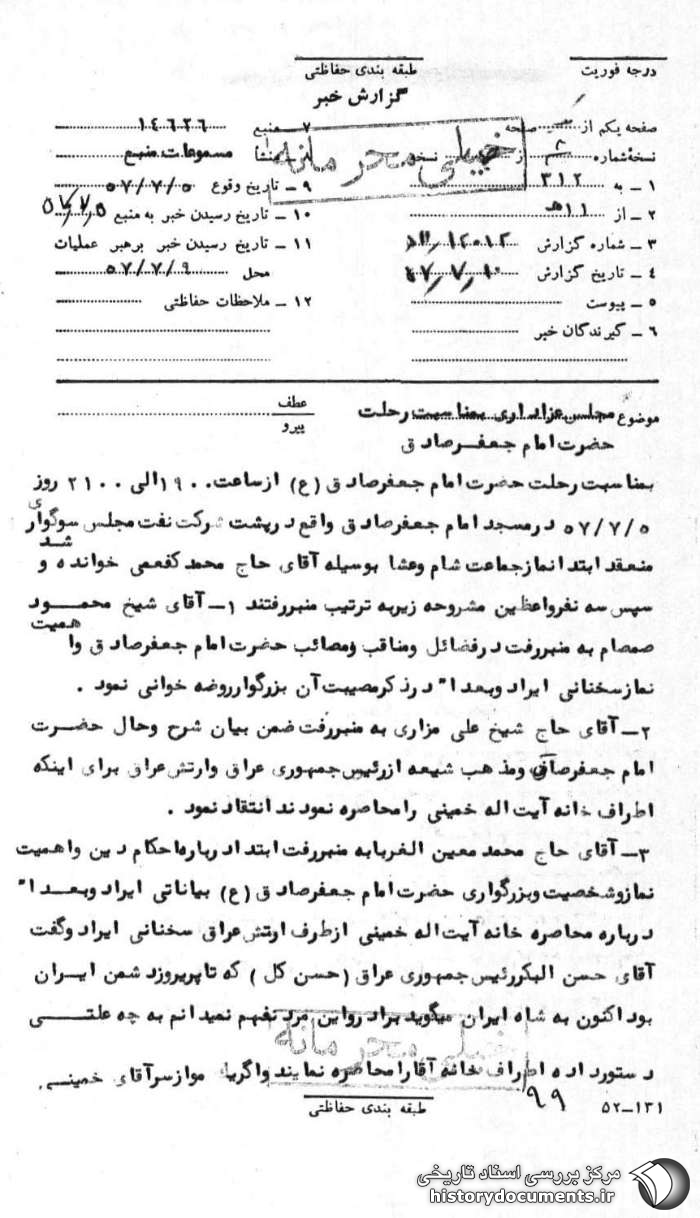 درجه فوریت
طبقه بندی حفاظتی
گزارش خبر
خیلی محرمانه
صفحه یکم از صفحه
نسخه شماره از نسخه
۱ ـ به ۳۱۲
۲ ـ از ۱۱ هـ
۳ ـ شماره گزارش
۴ ـ تاریخ گزارش
۵ ـ پیوست
۶ ـ گیرندگان خبر
۷ ـ منبع ۱۴۶۲۶
منشأ مسموعات منبع
۹ ـ تاریخ وقوع ۵۷/۷/۵
۱۰ ـ تاریخ رسیدن خبر به منبع ۵۷/۷/۵
۱۱ ـ تاریخ رسیدن خبر برهبر عملیات
محل ۵۷/۷/۹
۱۲ ـ ملاحظات حفاظتی
موضوع مجلس عزاداری بمناسبت رحلت
حضرت امام جعفرصادق
عطف
پیرو
بمناسبت رحلت حضرت امام جعفرصادق (ع) از ساعت ۱۹۰۰ الی ۲۱۰۰ روز
۵۷/۷/۵ در مسجد امام جعفرصادق واقع در پشت شرکت نفت مجلس سوگواری
منعقد شد ابتدا نماز جماعت شام وعشا بوسیله آقای حاج محمد کفعمی خوانده و
سپس سه نفر واعظین مشروحه زیر به ترتیب منبر رفتند ۱ـ آقای شیخ محمود
صمصام به منبر رفت در فضائل ومناقب ومصائب حضرت امام جعفرصادق واهمیت
نماز سخنانی ایراد وبعداً در ذکر مصیبت آن بزرگوار روضه خوانی نمود .
۲ـ آقای حاج شیخ علی مزاری به منبر رفت ضمن بیان شرح وحال حضرت
امام جعفرصادق ومذهب شیعه از رئیس جمهوری عراق وارتش عراق برای اینکه
اطراف خانه آیت اله خمینی را محاصره نمودند انتقاد نمود .
۳ـ آقای حاج محمد معین الغربا به منبر رفت ابتدا درباره احکام دین واهمیت
نماز وشخصیت وبزرگواری حضرت امام جعفرصادق (ع) بیاناتی ایراد وبعداً
درباره محاصره خانه آیت اله خمینی ازطرف ارتش عراق سخنانی ایراد وگفت
آقای حسن البکر رئیس جمهوری عراق (حسن کل) که تا پریروز دشمن ایران
بود اکنون به شاه ایران میگوید برادر واین مرد نفهم نمیدانم به چه علتی
خیلی محرمانه
دستور داده اطراف خانه آقا را محاصره نمایند واگر یک مو از سر آقای خمینی
۹۹
۵۲ـ۱۳۱
طبقه بندی حفاظتی
مرکز بررسی اسناد تاریخی
historydocuments.ir